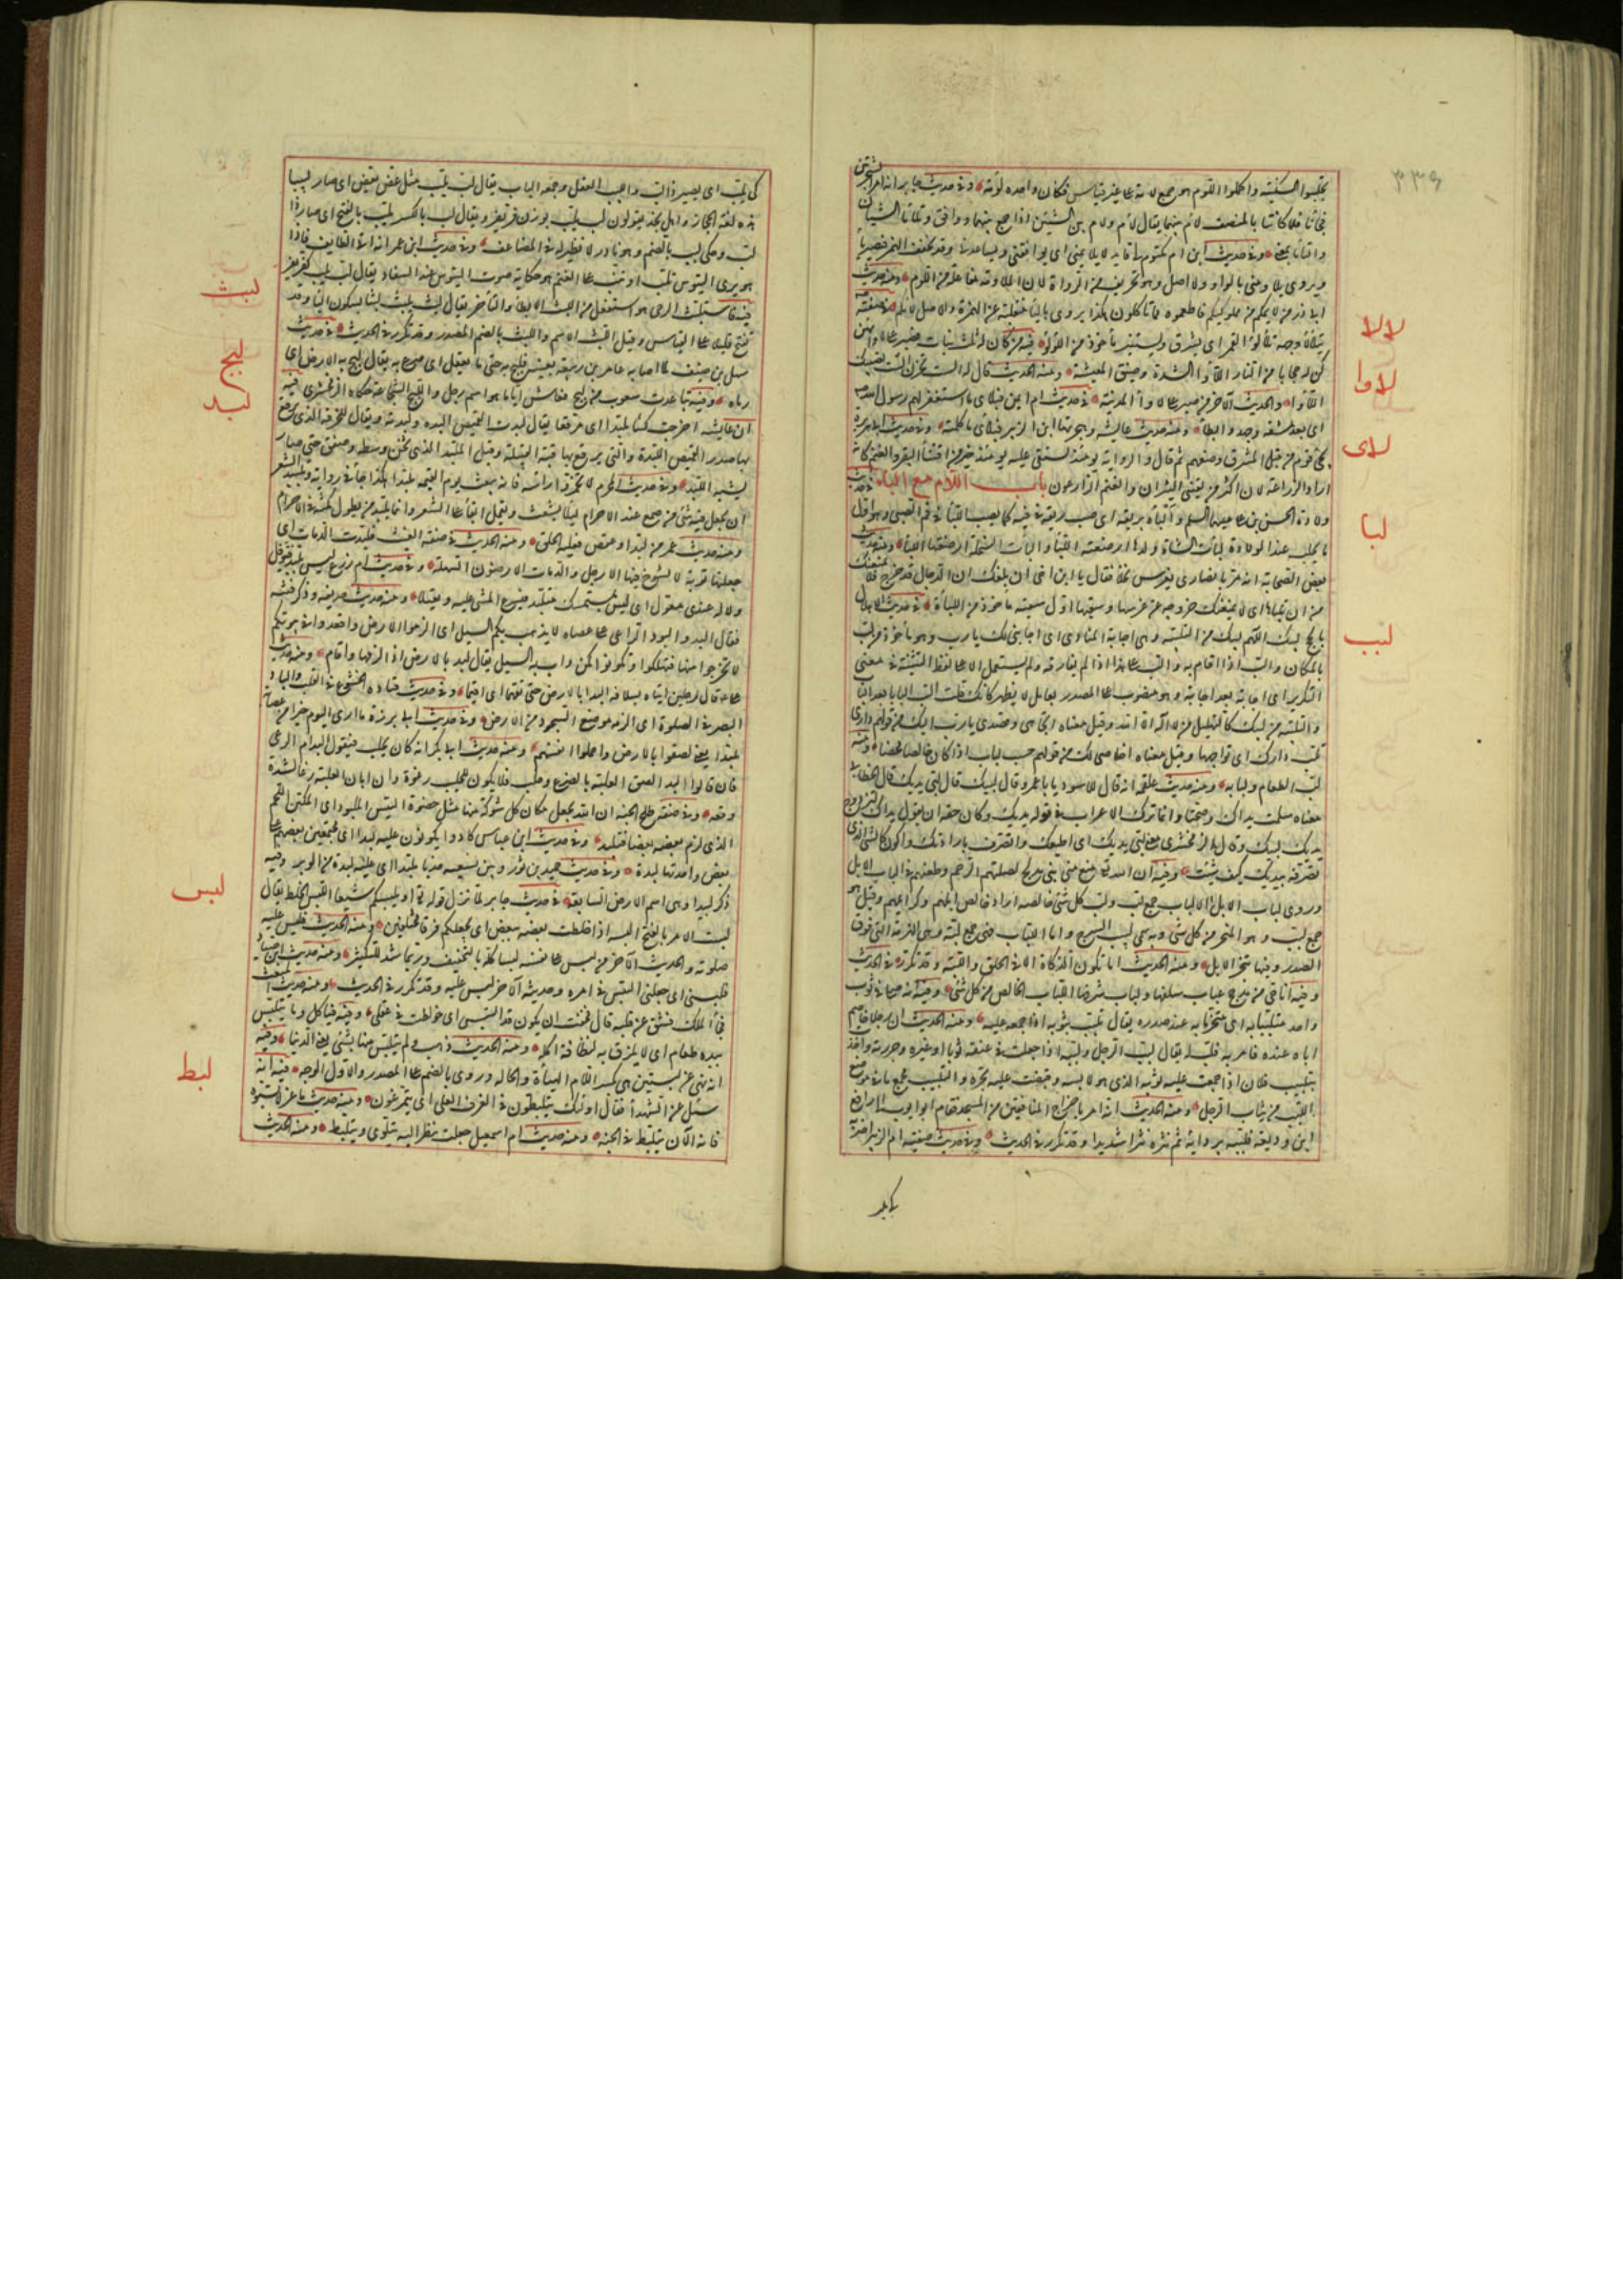 تجلببوا السكينة وأكملوا اللؤم هو جمع لأمة على غير قياس فكأن واحده لؤمة وفي حديث جابر أنه أمر الشجرتين
فجاءتا فلما كانتا بالمنصف لأم بينهما يقال لأم ولاءم بين الشيئين إذا جمع بينهما ووافق وتلاءم الشيئان
والتأما بمعنى وفي حديث ابن أم مكتوم لي قايد لا يلائمني أي يوافقني ويساعدني وقد تخفف الهمزة فيصير ياء
ويروى يلاومني بالواو ولا أصل له وهو تحريف من الرواة لأن الملاومة مفاعلة من اللوم ومنه حديث
أبي ذر من لايمكم من مملوكيكم فأطعموه مما تأكلون هكذا يروى بالياء منقلبة عن الهمزة والأصل لاءمكم في صفته
يتلألأ وجهه تلألؤ القمر أي يشرق ويستنير مأخوذ من اللؤلؤ فيه من كان له ثلث بنات فصبر على لأوائهن
كن له حجابا من النار اللأواء الشدة وضيق المعيشة ومنه الحديث قال له ألست تحزن ألست تصيبك
اللأواء والحديث الآخر من صبر على لأواء المدينة في حديث أم أيمن فبلأي ما استغفر لهم رسول الله
أي بعد مشقة وجهد وإبطاء ومنه حديث عايشة وهجرتها ابن الزبير فبلأي ما كلمته وفي حديث أبي هريرة
يجيء قوم من قبل المشرق وصفهم ثم قال والراوية يومئذ يستقى عليها يومئذ خير من اقتناء البقر والغنم كأنه
أراد الزراعة لأن أكثر من يقتني الثيران والغنم الزارعون باب اللام مع الباء في حديث
ولادة الحسن بن علي عليهما السلم وألبأه بريقه أي صب ريقه في فيه كما يصب اللبأ في فم الصبي وهو أول
ما يحلب عند الولادة لبأت الشاة ولدها أرضعته اللبأ وألبأت السخلة أرضعتها اللبأ ومنه حديث
بعض الصحابة أنه مر بأنصاري يغرس نخلا فقال يا ابن أخي إن بلغك أن الدجال قد خرج فلا يمنعنك
من أن تلبأها أي لا يمنعنك خروجه عن غرسها وسقيها أول سقية مأخوذ من اللبأ في حديث الإهلال
بالحج لبيك اللهم لبيك من التلبية وهي إجابة المنادي أي إجابتي لك يا رب وهو مأخوذ من لب
بالمكان وألب إذا أقام به وألب على كذا إذا لم يفارقه ولم يستعمل إلا على لفظ التثنية في معنى
التكرير أي إجابة بعد إجابة وهو منصوب على المصدر بعامل لا يظهر كأنك قلت ألب إلبابا بعد إلباب
والتلبية من لبيك كالتهليل من لا إله إلا الله وقيل معناه اتجاهي وقصدي يا رب إليك من قولهم داري
تلب دارك أي تواجهها وقيل معناه إخلاصي لك من قولهم حسب لباب إذا كان خالصا محضا ومنه
لب الطعام ولبابه ومنه حديث علقمة أنه قال للأسود يا با عمرو قال لبيك قال لبي يديك قال الخطابي
معناه سلمت يداك وصحتا وإنما ترك الإعراب في قوله يديك وكان حقه أن يقول يداك لتزدوج
يديك بلبيك وقال الزمخشري معنى لبي يديك أي أطيعك وأتصرف بإرادتك وأكون كالشيء الذي
تصرفه بيديك كيف شئت وفيه إن الله منع مني بني مدلج لصلتهم الرحم وطعنهم في ألباب الإبل
وروي لبات الإبل الألباب جمع لب ولب كل شيء خالصه أراد خالص إبلهم وكرائمهم وقيل هو
جمع لبب وهو المنحر من كل شيء وبه سمي لبب السرج وأما اللبات فهي جمع لبة وهي الهزمة التي فوق
الصدر وفيها تنحر الإبل ومنه الحديث أما تكون الذكاة إلا في الحلق واللبة وقد تكرر في الحديث
وفيه إنا حي من مذحج عباب سلفها ولباب شرفها اللباب الخالص من كل شيء وفيه أنه صلى في ثوب
واحد متلببا به أي متحزما به عند صدره يقال تلبب بثوبه إذا جمعه عليه ومنه الحديث إن رجلا خاصم
أباه عنده فأمر به فلب له يقال لببت الرجل ولببته إذا جعلت في عنقه ثوبا أو غيره وجررته وأخذت
بتلبيب فلان إذا جمعت عليه ثوبه الذي هو لابسه وقبضت عليه تجره والتلبيب مجمع ما في موضع
اللبب من ثياب الرجل ومنه الحديث أنه أمر بإخراج المنافقين من المسجد فقام أبو أيوب إلى رافع
ابن وديعة فلببه بردائه ثم نتره نترا شديدا وقد تكرر في الحديث وفي حديث صفية أم الزبير أضربه
لالا
لاوا
لاى
لبا
لبب
٣٣٦
كي يلب أي يصير ذا لب واللب العقل وجمعه ألباب يقال لب يلب مثل عض يعض أي صار لبيبا
هذه لغة الحجاز وأهل نجد يقولون لب يلب بوزن فر يفر ويقال لبب بالكسر يلب بالفتح أي صار ذا
لب وحكي لبب بالضم وهو نادر لا نظير له في المضاعف وفي حديث ابن عمر أنه أتى الطايف فإذا
هو يرى التيوس تلب أو تنب على الغنم هو حكاية صوت التيوس عند السفاد يقال لب يلب كفر يفر
فيه فاستلبث الوحي هو استفعل من اللبث الإبطاء والتأخر يقال لبث يلبث لبثا بسكون الباء وقد
تفتح قليلا على القياس وقيل اللبث الاسم واللبث بالضم المصدر وقد تكرر في الحديث في حديث
سهل بن حنيف لما أصابه عامر بن ربيعة بعينه فلبج به حتى ما يعقل أي صرع به يقال لبج به الأرض أي
رماه وفيه تباعدت شعوب من لبج فعاش أياما هو اسم رجل واللبج الشجاعة حكاه الزمخشري فيه
إن عايشة أخرجت كساء ملبدا أي مرقعا يقال لبدت القميص ألبده ولبدته ويقال للخرقة التي يرقع
بها صدر القميص اللبدة والتي يرقع بها قبه القبيلة وقيل الملبد الذي ثخن وسطه وصفق حتى صار
يشبه اللبد وفي حديث المحرم لا تخمروا رأسه فإنه يبعث يوم القيمة ملبدا هكذا جاء في رواية وتلبيد الشعر
أن يجعل فيه شيء من صمغ عند الإحرام ليلا يشعث ويقمل إبقاء على الشعر وإنما يلبد من يطول مكثه في الإحرام
ومنه حديث عمر من لبد أو عقص فعليه الحلق ومنه الحديث في صفة الغيث فلبدت الدماث أي
جعلتها قوية لا تسوخ فيها الأرجل والدماث الأرضون السهلة وفي حديث أم زرع ليس بلبد فيتوقل
ولا له عندي معول أي ليس بمستمسك متلبد فيسرع المشي فيه ويعتلى ومنه حديث حذيفة وذكر فتنة
فقال البدوا لبود الراعي على عصاه لا يذهب بكم السيل أي الزموا الأرض واقعدوا في بيوتكم
لا تخرجوا منها فتهلكوا وتكونوا كمن ذهب به السيل يقال لبد بالأرض إذا لزمها وأقام ومنه حديث
علي قال لرجلين أتياه يسألانه ألبدا بالأرض حتى تفهما أي أقيما وفي حديث قتادة الخشوع في القلب وإلباد
البصر في الصلوة أي إلزامه موضع السجود من الأرض وفي حديث أبي برزة ما أرى اليوم خيرا من عصابة
ملبدة يعني لصقوا بالأرض وأخملوا أنفسهم ومنه حديث أبي بكر أنه كان يحلب فيقول ألبد أم أرغي
فإن قالوا ألبد ألصق العلبة بالضرع وحلب فلا يكون للحلب رغوة وإن أبان العلبة رغا لشدة
وقعه وفي صفة طلح الجنة إن الله يجعل مكان كل شوكة منها مثل خصوة التيس الملبود أي المكتنز اللحم
الذي لزم بعضه بعضا فتلبد وفي حديث ابن عباس كادوا يكونون عليه لبدا أي مجتمعين بعضهم على
بعض واحدتها لبدة وفي حديث حميد بن ثور وبين نسعيه خدبا ملبدا أي عليه لبدة من الوبر وفيه
ذكر لبيدا وهي اسم الأرض السابعة في حديث جابر لما نزل قوله تعالى أو يلبسكم شيعا اللبس الخلط يقال
لبست الأمر بالفتح ألبسه إذا خلطت بعضه ببعض أي يجعلكم فرقا مختلفين ومنه الحديث فلبس عليه
صلوته والحديث الآخر من لبس على نفسه لبسا كله بالتخفيف وربما شدد للتكثير ومنه حديث ابن صياد
فلبسني أي جعلني ألتبس في أمره وحديثه الآخر لبس عليه وقد تكرر في الحديث ومنه حديث المبعث
فجاء الملك فشق عن قلبه قال فخفت أن يكون قد التبس بي أي خولطت في عقلي وفيه فيأكل وما يتلبس
بيده طعام أي لا يلزق به لنظافة أكله ومنه الحديث ذهب ولم يتلبس منها بشيء يعني الدنيا وفيه
أنه نهى عن لبستين هي بكسر اللام الهيئة والحالة وروي بالضم على المصدر والأول الوجه فيه أنه
سئل عن الشهداء فقال أولئك يتلبطون في الغرف العلى أي يتمرغون ومنه حديث ماعز لا تسبوه
فإنه الآن يتلبط في الجنة ومنه حديث أم إسمعيل جعلت تنظر إليه يتلوى ويتلبط ومنه الحديث
لبث
لبج
لبد
لبس
لبط